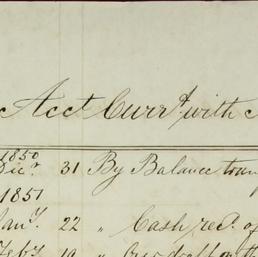 Acct Currt. with
1850
Decr. 31 By Balance tran
1851
Jany. 22 " Cash recd. of
Feby 19 "